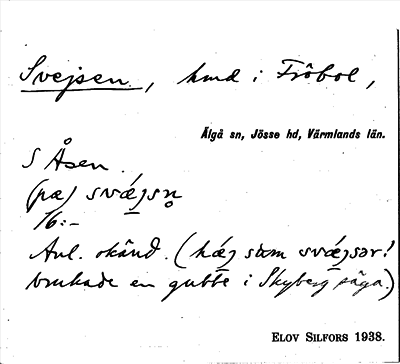 Svejsen, hmd i Fröbol,
Älgå sn, Jösse hd, Värmlands län.
S Åsen
(pæ) svǽjsn̥
16:-
Anl. okänd. (hæ̨j som svǽjsər!
brukade en gubbe i Skyberg säga.)
ELOV SILFORS 1938.